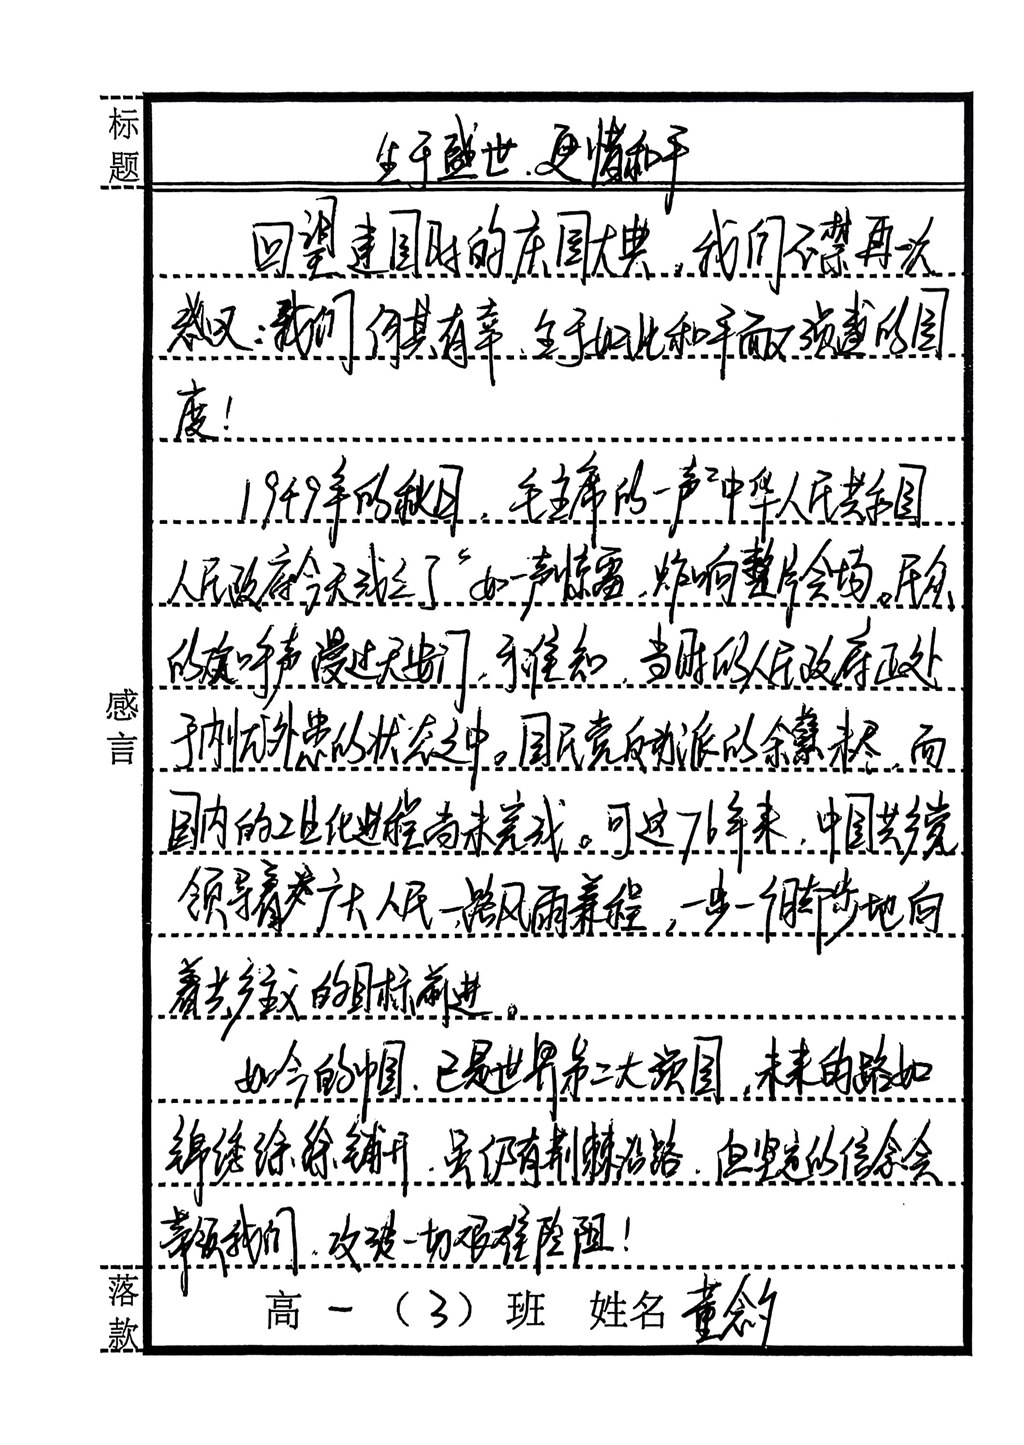 标题
生于盛世、更惜和平
回望建国时的庆国大典，我们不禁再一次
感叹：我们何其有幸，生于如此和平而又强盛的国
度！
1949年的秋日，毛主席的一声“中华人民共和国
人民政府今天成立了”如一声惊雷，炸响整片会场。民众
的欢呼声漫过天安门，于谁知，当时的人民政府正处
于内忧外患的状态之中。国民党反动派的余孽未尽，而
感言
国内的工业化进程尚未完成。可这76年来，中国共产党
领导着广大人民一路风雨兼程，一步一个脚步地向
着共产主义的目标前进。
如今的中国，已是世界第二大强国，未来的路如
锦绣徐徐铺开，虽仍有荆棘沿路，但坚定的信念会
带领我们，攻破一切艰难险阻！
落款
高一（3）班 姓名 董念夕